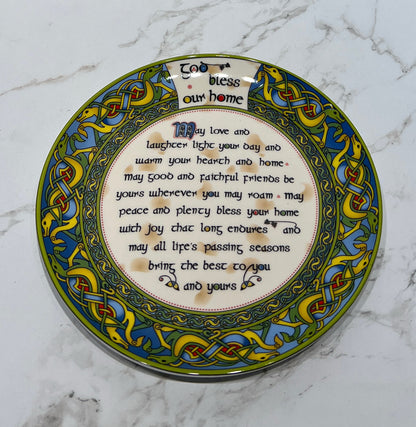 God
bless
our home
May love and
laughter light your day and
warm your hearth and home
may good and faithful friends be
yours wherever you may roam may
peace and plenty bless your home
with joy that long endures and
may all life's passing seasons
bring the best to you
and yours